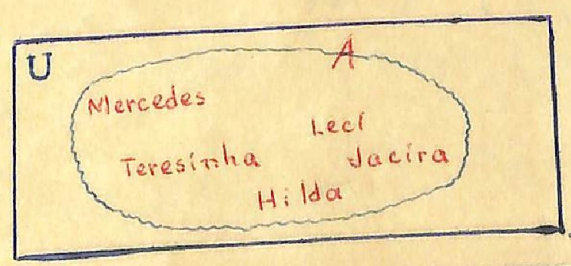 U
A
Mercedes
Lecí
Teresinha
Jacira
Hilda